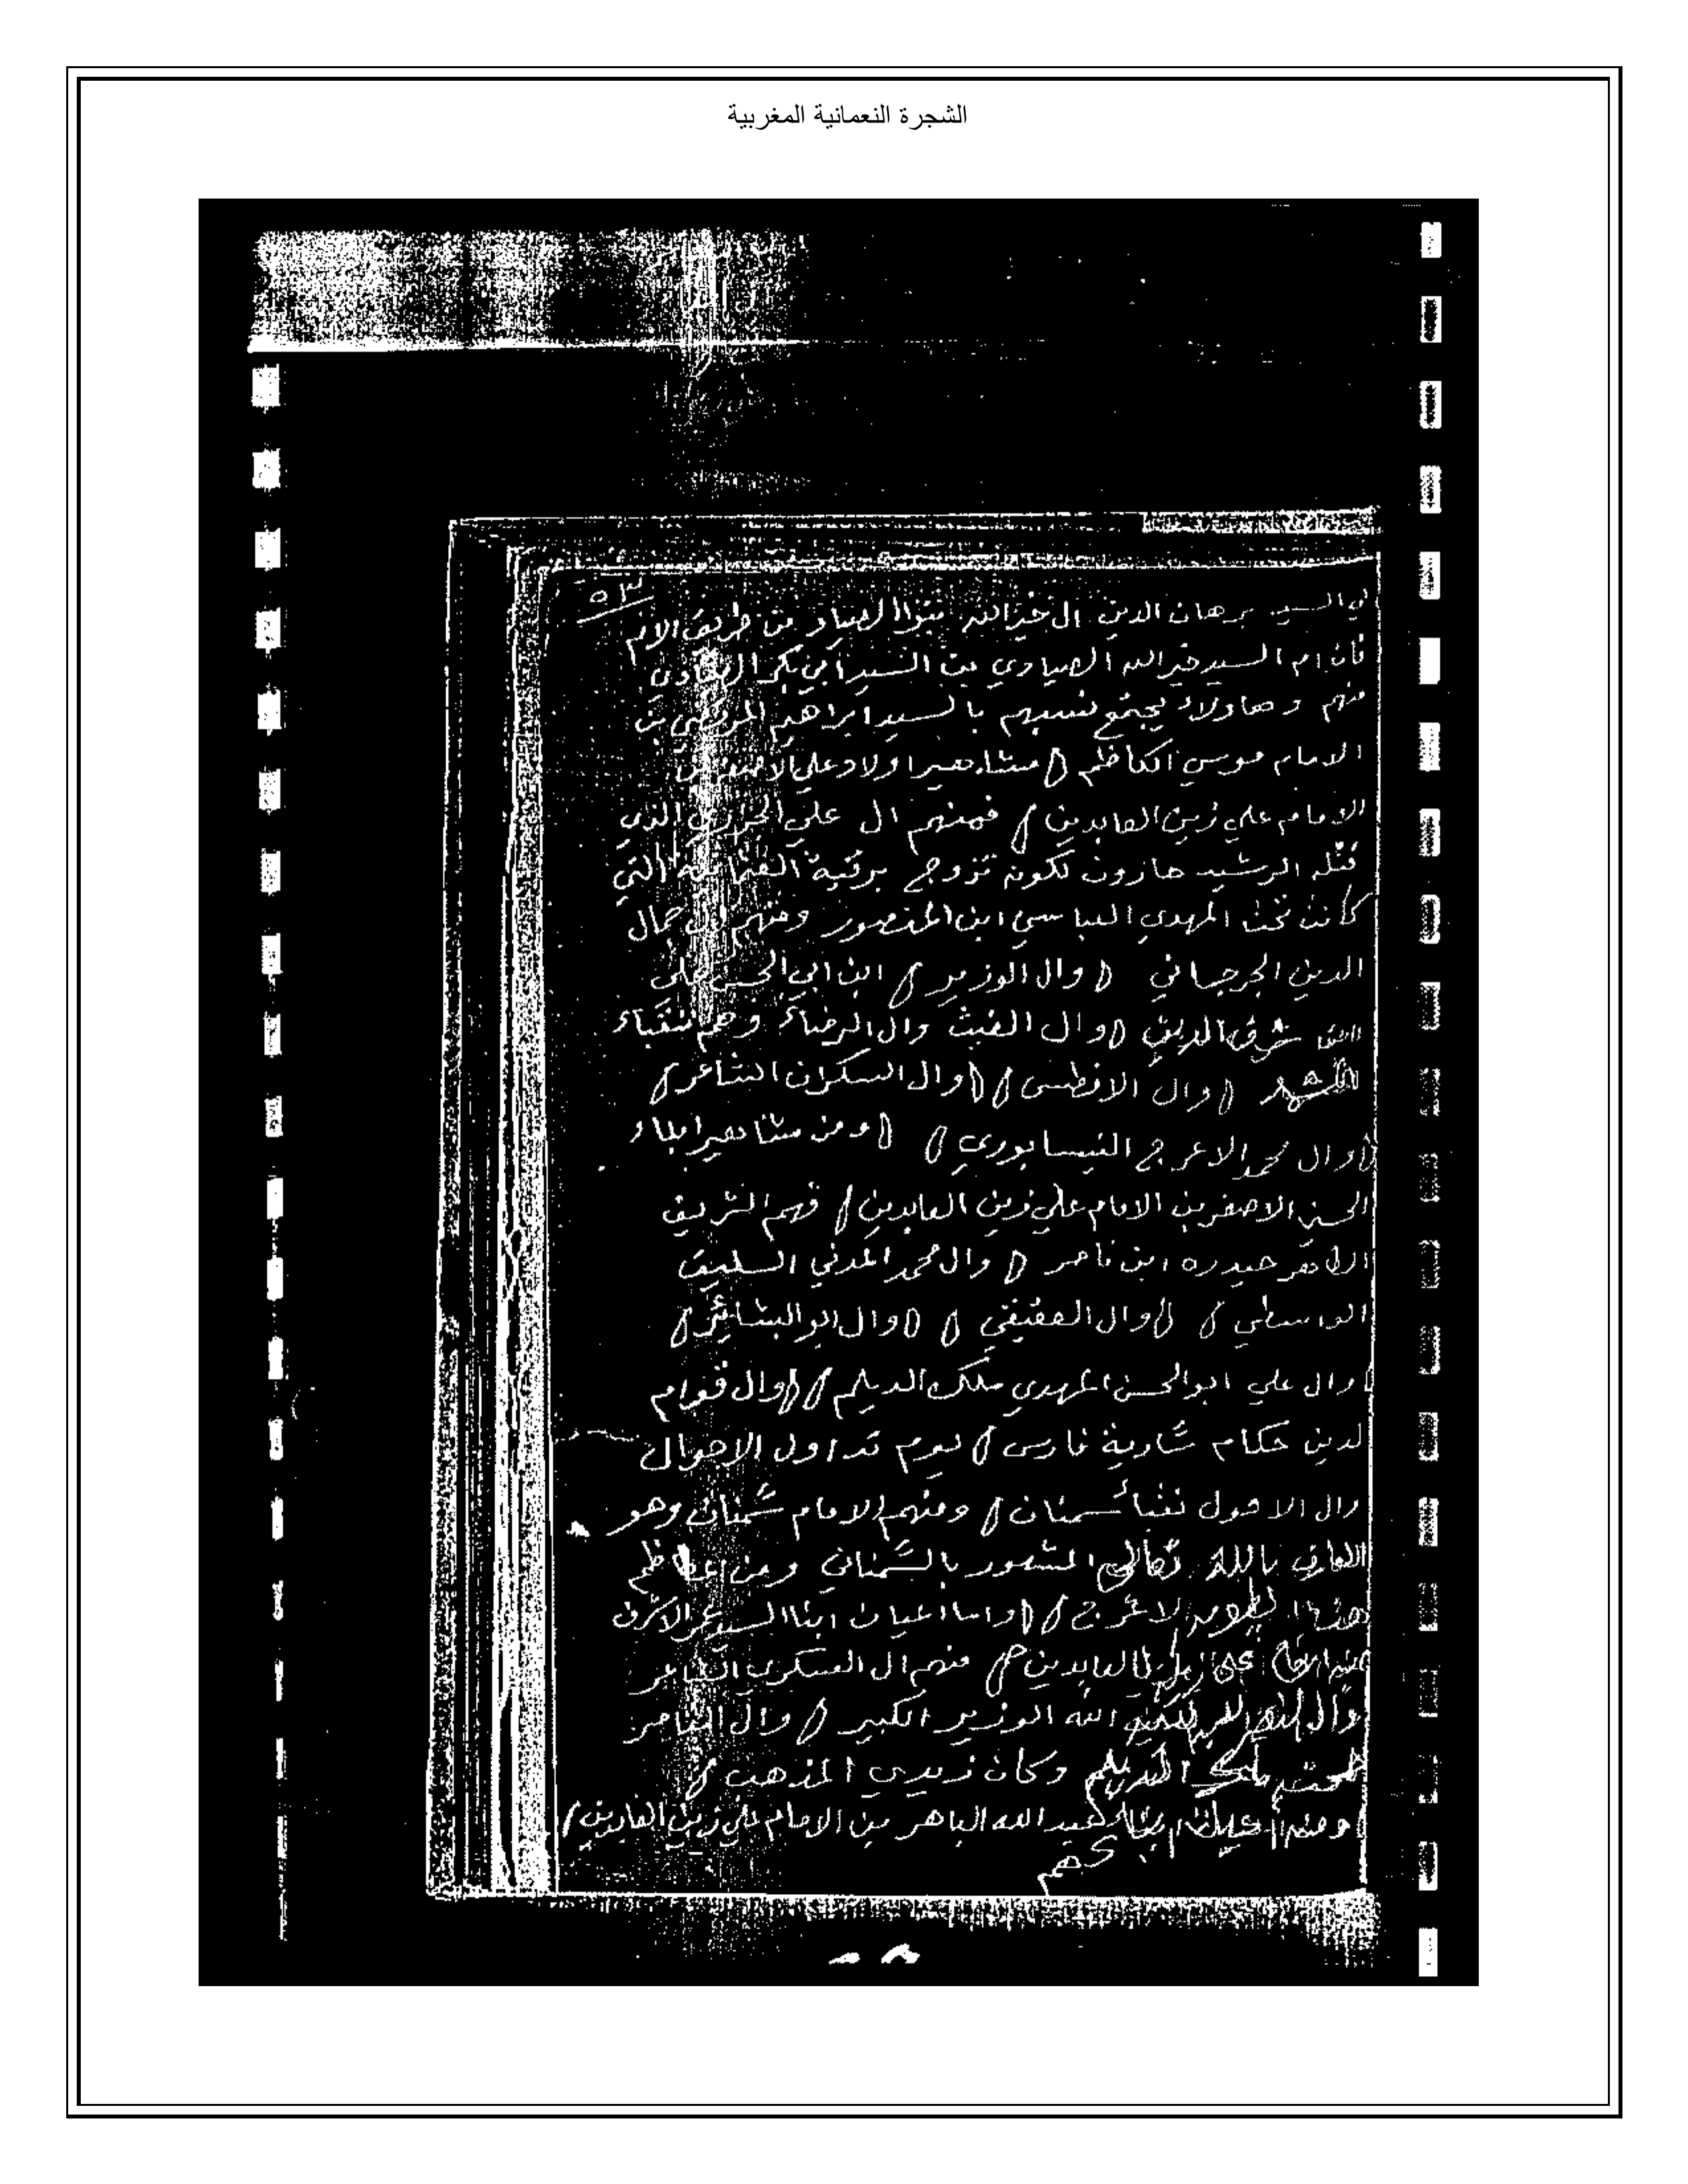 الشجرة النعمانية المغربية
٥٣
السيد برهان الدين ال خير الله بنوا الصياد من طريق الام
فان ام السيد خير الله الصيادي بن السيد ابي بكر الصيادي
منهم وهاولاء يجتمع نسبهم بالسيد ابراهيم المرتضي بن
الامام موسي الكاظم ( مشاهير اولاد علي الاصغر بن
الامام علي زين العابدين ) فمنهم ال علي الجزري الذي
قتله الرشيد هارون لكونه تزوج برقية العثمانية التي
كانت تحت المهدي العباسي ابن المنصور ومنهم ال جمال
الدين الجرجاني ( وال الوزير ) ابن ابي الحسن علي
شرف الدين ( وال الغيث وال الرضاء وهم نقباء
( وال الافطس ) ( وال السكران الشاعر )
( وال محمد الاعرج النيسابوري ) ( ومن مشاهير ابناء
الحسين الاصغر بن الامام علي زين العابدين ) فهم الشريف
حيدره ابن ناصر ( وال محمد المدني السليق
الواسطي ) ( وال العقيقي ) ( وال ابو البشائر )
( وال علي ابو الحسن المهدي ملك الديلم ) ( وال قوام
الدين حكام سارية فارس ) يوم تداول الاحوال
وال الاحول نقباء سمنان ) ومنهم الامام سمنان وهو
العارف بالله تعالى المشهور بالسمناني ومن
الاعرج ) ( واما اعيان ابناء السيد عمر الاشرف
العابدين منهم ال العسكري الشاعر
الله الوزير الكبير ( وال الناصر
ملك الديلم وكان زيدي المذهب )
ومنهم عبد الله الباهر بن الامام علي زين العابدين )